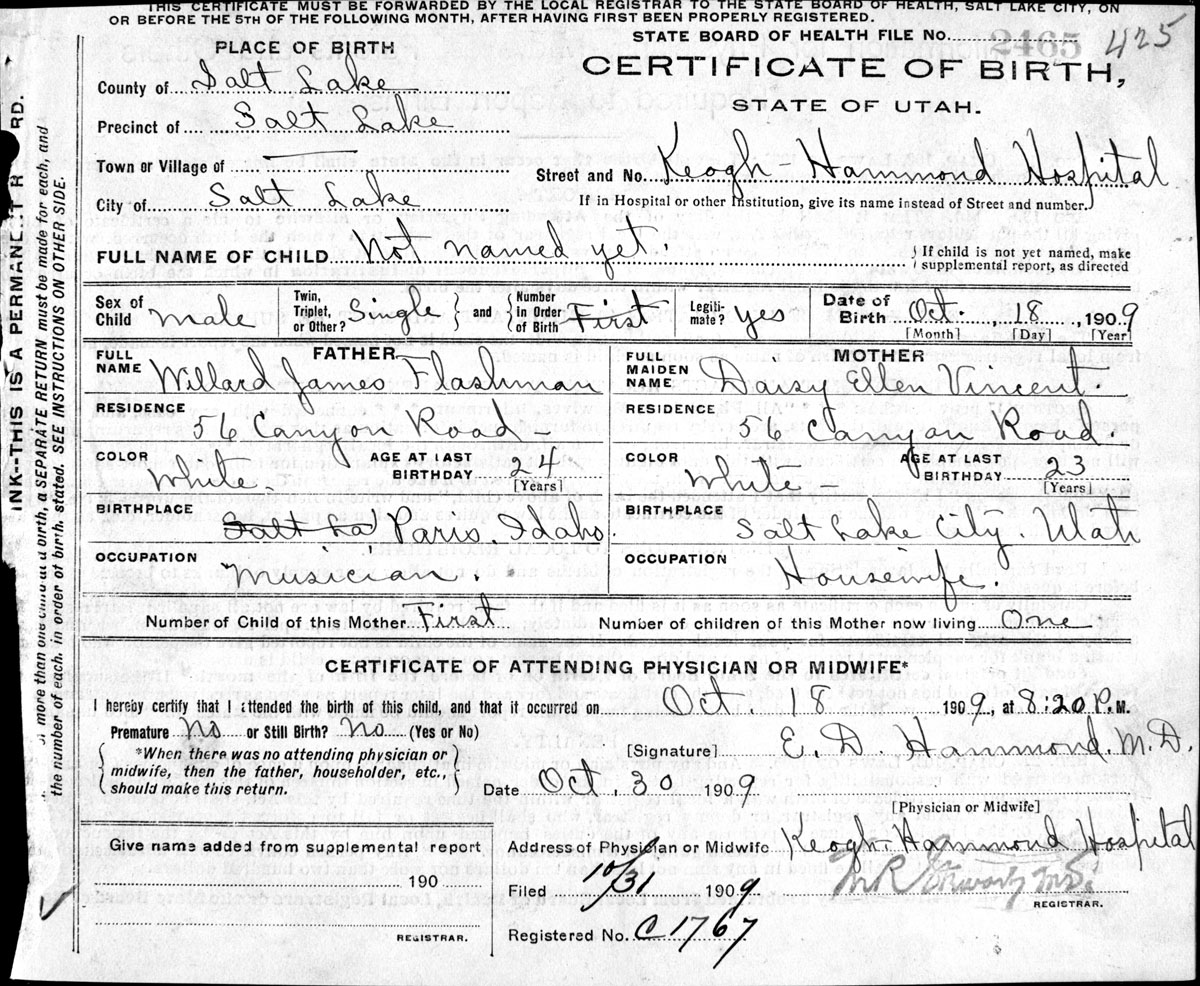 THIS CERTIFICATE MUST BE FORWARDED BY THE LOCAL REGISTRAR TO THE STATE BOARD OF HEALTH, SALT LAKE CITY, ON
OR BEFORE THE 5TH OF THE FOLLOWING MONTH, AFTER HAVING FIRST BEEN PROPERLY REGISTERED.
STATE BOARD OF HEALTH FILE No. 2465 425
PLACE OF BIRTH
CERTIFICATE OF BIRTH,
STATE OF UTAH.
County of Salt Lake
Precinct of Salt Lake
Town or Village of
Street and No. Keogh-Hammond Hospital
City of Salt Lake
If in Hospital or other Institution, give its name instead of Street and number.
FULL NAME OF CHILD Not named yet.
If child is not yet named, make
supplemental report, as directed
Sex of Child Male
Twin, Triplet, or Other? Single and Number in Order of Birth First
Legitimate? yes
Date of Birth Oct. 18, 1909
[Month] [Day] [Year]
FATHER
FULL NAME Willard James Flashman
RESIDENCE 56 Canyon Road
COLOR White AGE AT LAST BIRTHDAY 24
[Years]
BIRTHPLACE Salt La Paris, Idaho.
OCCUPATION Musician.
MOTHER
FULL MAIDEN NAME Daisy Ellen Vincent
RESIDENCE 56 Canyon Road.
COLOR White AGE AT LAST BIRTHDAY 23
[Years]
BIRTHPLACE Salt Lake City. Utah
OCCUPATION Housewife.
Number of Child of this Mother First
Number of children of this Mother now living One
CERTIFICATE OF ATTENDING PHYSICIAN OR MIDWIFE*
I hereby certify that I attended the birth of this child, and that it occurred on Oct. 18 1909, at 8:20 P.M.
Premature No or Still Birth? No (Yes or No)
*When there was no attending physician or
midwife, then the father, householder, etc.,
should make this return.
[Signature] E. D. Hammond. M.D.
Date Oct. 30 1909
[Physician or Midwife]
Give name added from supplemental report
190
REGISTRAR.
Address of Physician or Midwife Keogh-Hammond Hospital
Filed 10/31 1909
REGISTRAR.
Registered No. C 1767
INK--THIS IS A PERMANENT R RD.
more than one child at a birth, a SEPARATE RETURN must be made for each, and
the number of each, in order of birth, stated. SEE INSTRUCTIONS ON OTHER SIDE.